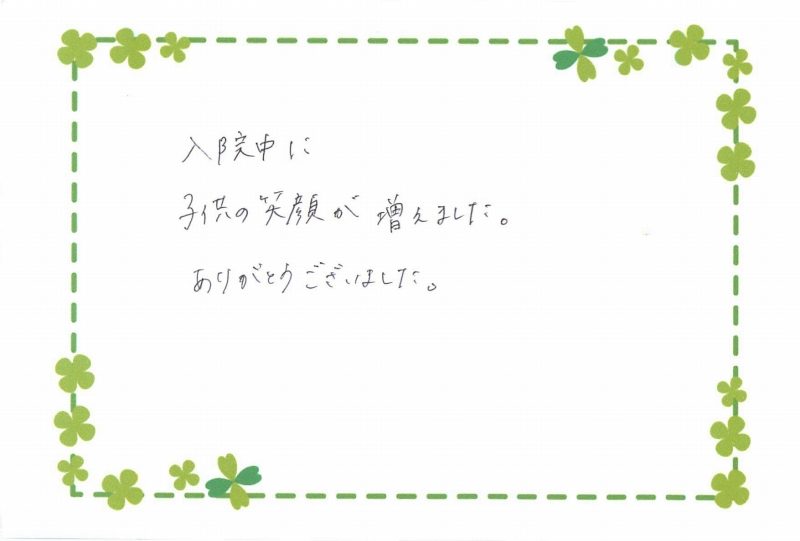 入院中に
子供の笑顔が増えました。
ありがとうございました。